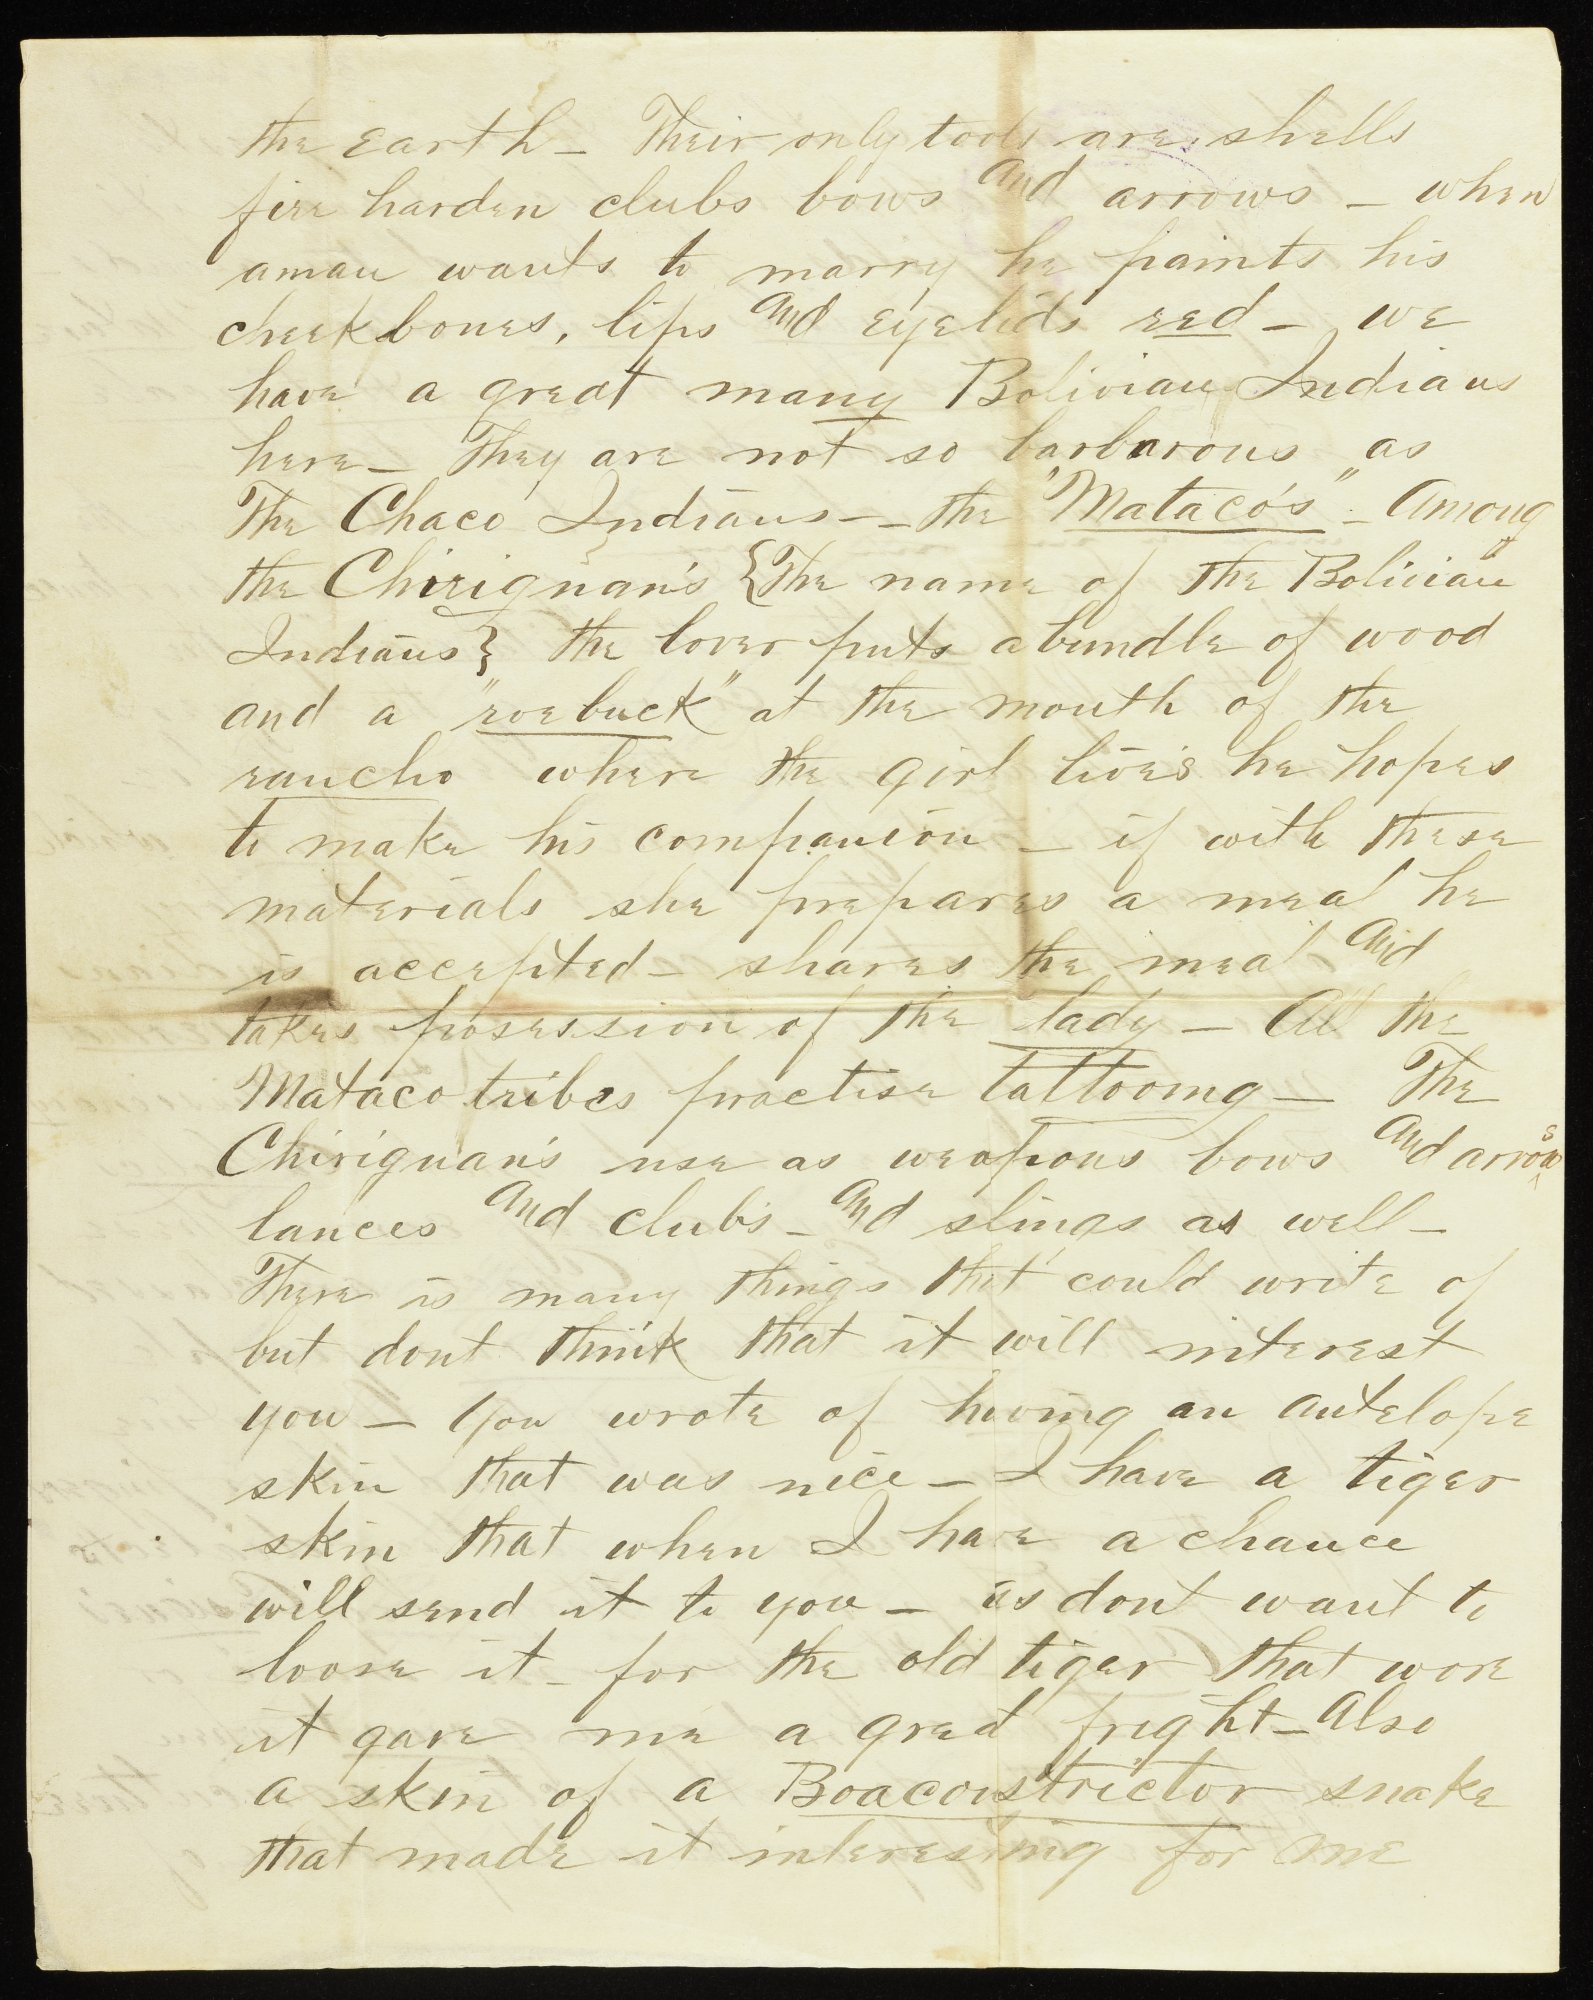 the earth - Their only tools are shells
fire harden clubs bows and arrows - when
aman wants to marry he paints his
cheekbones, lips and eyelids red - we
have a great many Bolivian Indians
here - They are not so barbarous as
The Chaco Indians - - the "Mataco's" - Among
the Chirignan's {The name of the Bolivian
Indians} the lover puts a bundle of wood
and a "roebuck" at the mouth of the
rancho where the girl lives he hopes
to make his companion - if with these
materials she prepares a meal he
is accepted - shares the meal and
takes posession of the lady - All the
Mataco tribes practise tattooing - The
Chirignan's use as weapons bows and arrows
lances and clubs - and slings as well -
There is many things that could write of
but dont think that it will interest
you - You wrote of having an antelope
skin that was nice - I have a tiger
skin that when I have a chance
will send it to you - as dont want to
loose it - for the old tiger that wore
it gave me a great fright - Also
a skin of a Boaconstrictor snake
that made it interesting for me